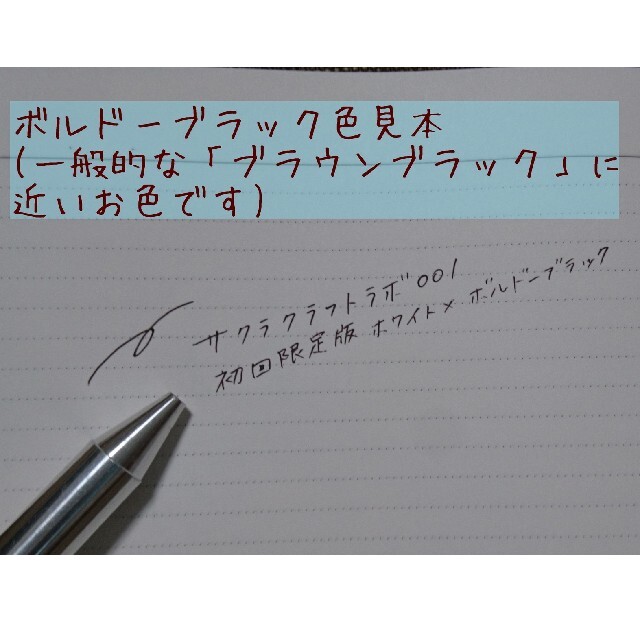 ボルドーブラック色見本
(一般的な「ブラウンブラック」に
近いお色です)
サクラクラフトラボ001
初回限定版 ホワイト× ボルドーブラック